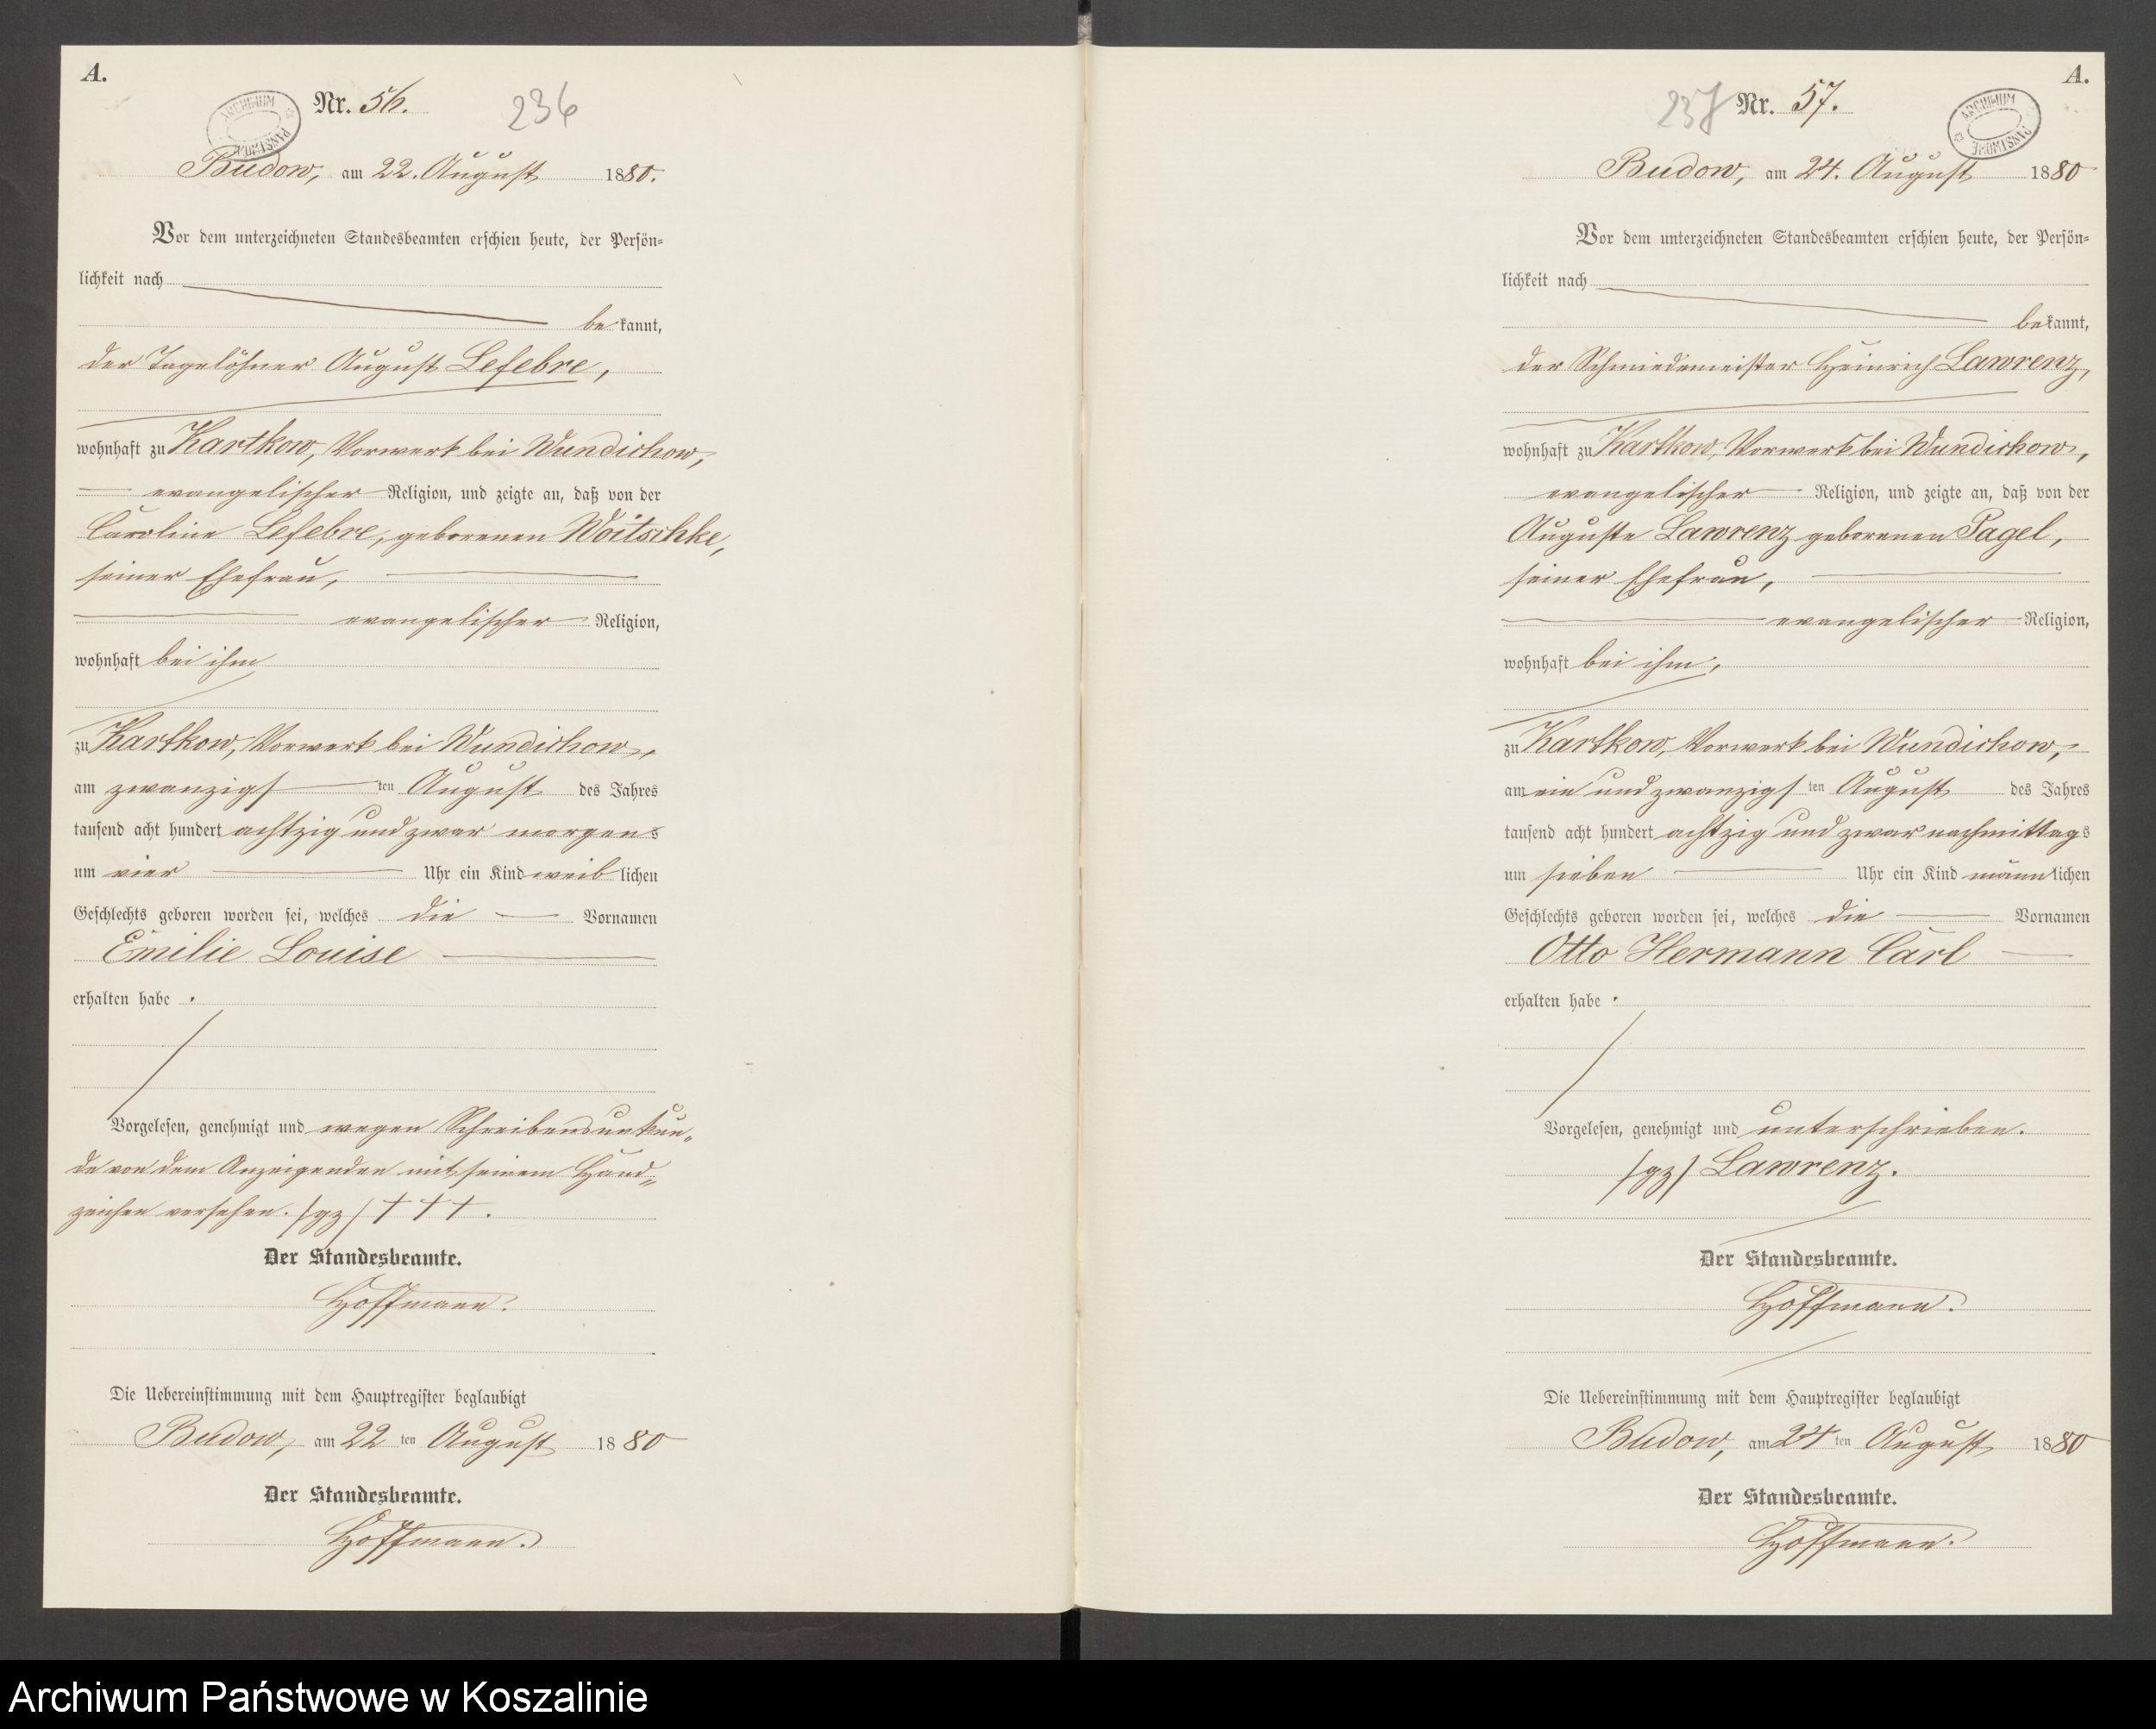 A.
Nr. 56.
236
ARCHIWUM PAŃSTWOWE
Budow, am 22. August 1880.
Vor dem unterzeichneten Standesbeamten erschien heute, der Persön=
lichkeit nach
bekannt,
der Tagelöhner August Lefebre,
wohnhaft zu Kartkow, Vorwerk bei Wundichow,
evangelischer Religion, und zeigte an, daß von der
Caroline Lefebre, geborenen Woitschke,
seiner Ehefrau,
evangelischer Religion,
wohnhaft bei ihm
zu Kartkow, Vorwerk bei Wundichow,
am zwanzigsten August des Jahres
tausend acht hundert achtzig und zwar morgens
um vier Uhr ein Kind weiblichen
Geschlechts geboren worden sei, welches die Vornamen
Emilie Louise
erhalten habe.
Vorgelesen, genehmigt und wegen Schreibensunkun=
de von dem Anzeigenden mit seinem Hand=
zeichen versehen. (gz) + + +.
Der Standesbeamte.
Hoffmann.
Die Uebereinstimmung mit dem Hauptregister beglaubigt
Budow, am 22 ten August 1880
Der Standesbeamte.
Hoffmann.
A.
237
Nr. 57.
ARCHIWUM PAŃSTWOWE
Budow, am 24. August 1880
Vor dem unterzeichneten Standesbeamten erschien heute, der Persön=
lichkeit nach
bekannt,
der Schmiedemeister Heinrich Lawrenz,
wohnhaft zu Kartkow, Vorwerk bei Wundichow,
evangelischer Religion, und zeigte an, daß von der
Auguste Lawrenz geborenen Pagel,
seiner Ehefrau,
evangelischer Religion,
wohnhaft bei ihm,
zu Kartkow, Vorwerk bei Wundichow,
am ein und zwanzigsten August des Jahres
tausend acht hundert achtzig und zwar nachmittags
um sieben Uhr ein Kind männlichen
Geschlechts geboren worden sei, welches die Vornamen
Otto Hermann Carl
erhalten habe.
Vorgelesen, genehmigt und unterschrieben.
(gz) Lawrenz.
Der Standesbeamte.
Hoffmann.
Die Uebereinstimmung mit dem Hauptregister beglaubigt
Budow, am 24 ten August 1880
Der Standesbeamte.
Hoffmann.
Archiwum Państwowe w Koszalinie